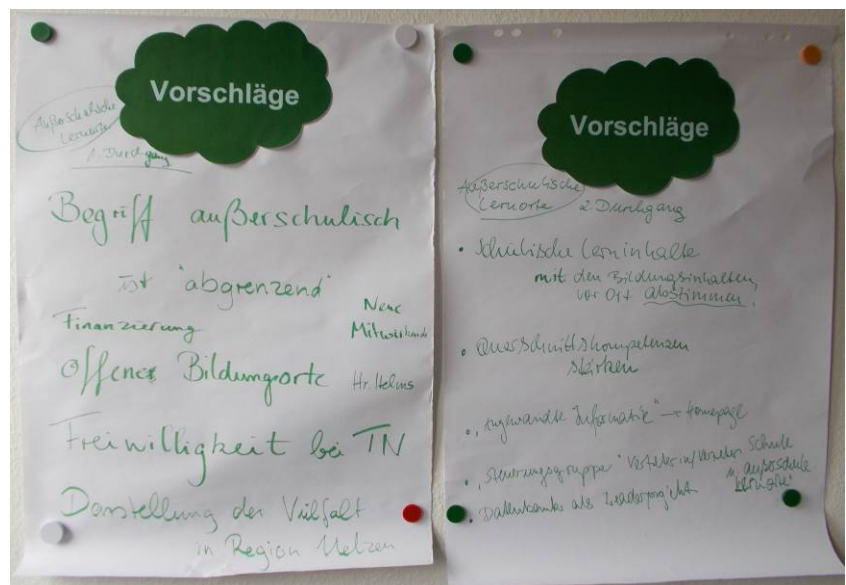 Vorschläge
Außerschulische
Lernorte
1. Durchgang
Begriff außerschulisch
ist "abgrenzend"
Neue
Finanzierung
Offener Bildungsorte Hr. Helms
Freiwilligkeit bei TN
Darstellung der Vielfalt
in Region Uelzen
Vorschläge
Außerschulische
Lernorte 2. Durchgang
• Schulische Lerninhalte
mit den Bildungsinhalten,
vor Ort abstimmen.
• Querschnittskompetenzen
stärken
• "Angewandte Informatik" → Homepage
• "Steuerungsgruppe" Vertreter Schule
u. außerschul.
Lernorte"
• Datenbanken als Leaderprojekt